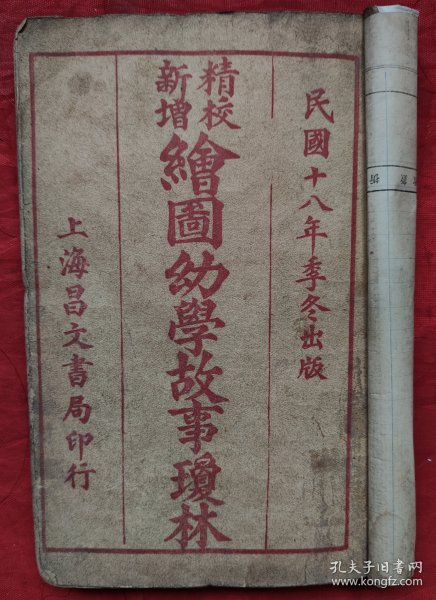 民國十八年季冬出版
精校
新增
繪圖幼學故事瓊林
上海昌文書局印行
孔夫子旧书网
www.kongfz.com